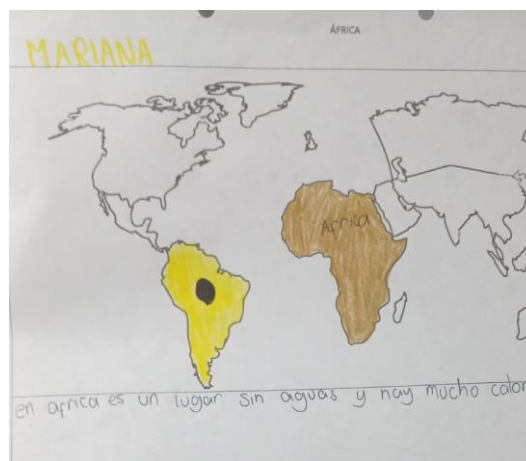 ÁFRICA
MARIANA
Africa
en africa es un lugar sin aguas y hay mucho calor